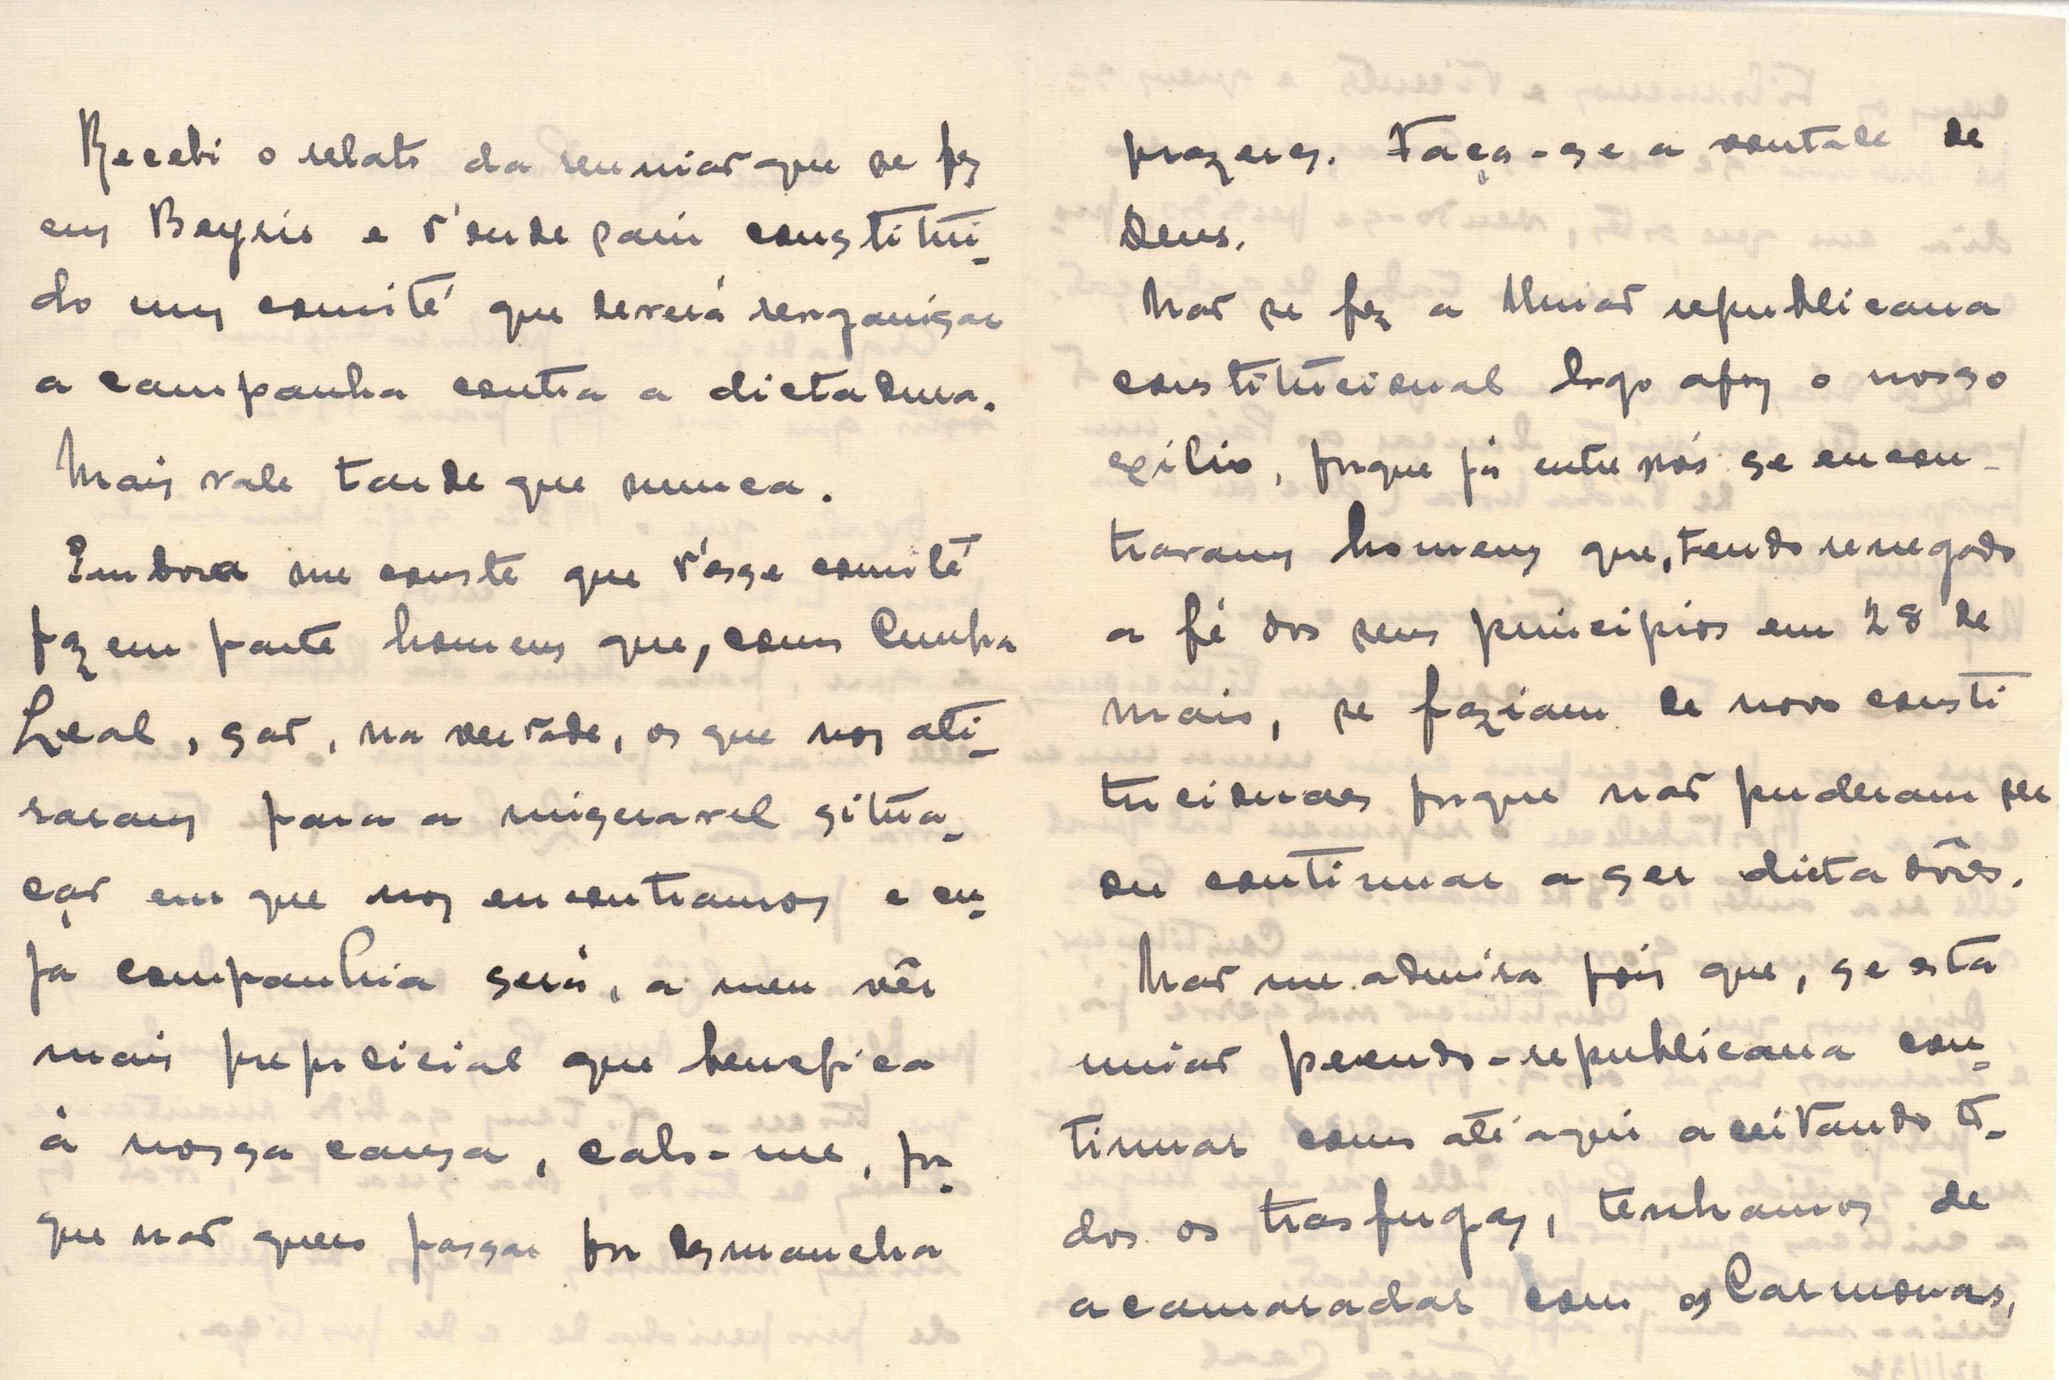 Recebi o relato da reunião que se fez
em Beyris e d'onde saiu constitui-
do um comité que deverá reorganisar
a campanha contra a dictadura.
Mais vale tarde que nunca.
Embora me conste que d'esse comité
fazem parte homens que, como Cunha
Leal, são, na verdade, os que nos ati-
raram para a miseravel situa-
ção em que nos encontramos e cu-
ja companhia será, a meu vêr
mais prejudicial que benefica
á nossa causa, calo-me, por-
que não quero passar por desmancha
prazeres. Faça-se a vontade de
Deus.
Não se fez a União republicana
constitucional logo apoz o nosso
exilio, porque já entre nós se encon-
travam homens que, tendo renegado
a fé dos seus principios em 28 de
maio, se faziam de novo consti
tucionaes porque não puderam ser
ou continuar a ser dictadôres.
Não me admira pois que, se esta
união pseudo-republicana con-
tinuar como até aqui aceitando to-
dos os trasfugas, tenhamos de
acamaradar com os Carmonas,